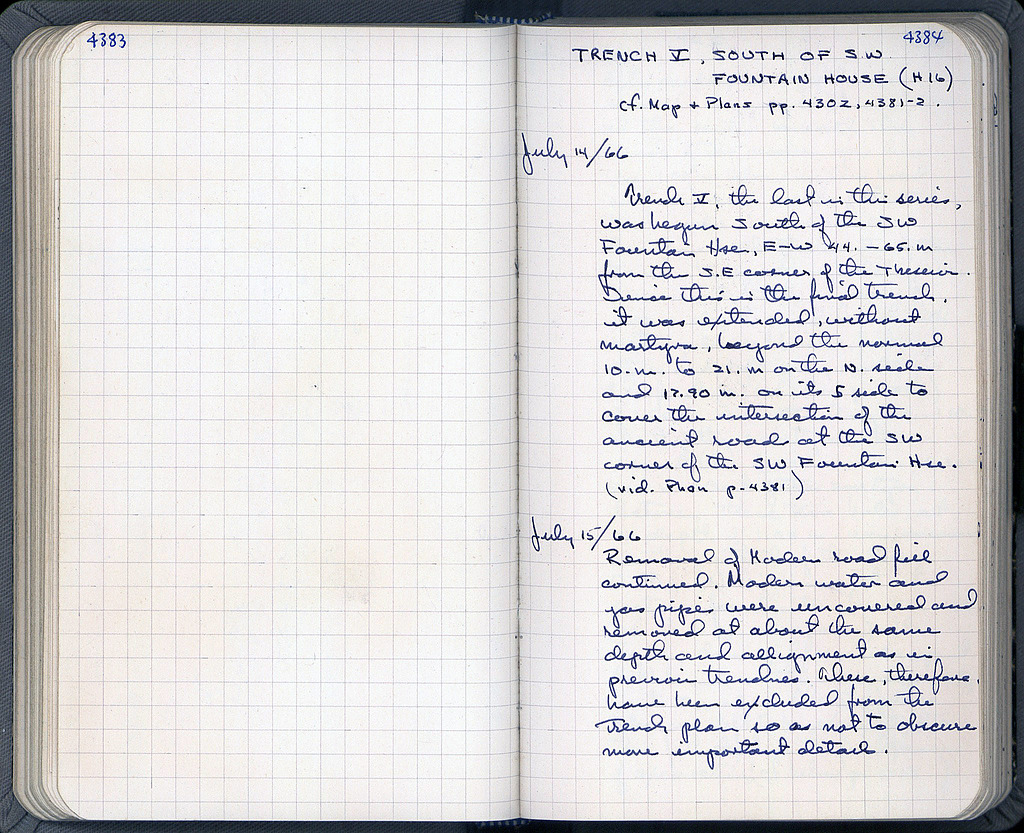 4383
4384
TRENCH V, SOUTH OF S.W.
FOUNTAIN HOUSE (H16)
cf. Map + Plans pp. 4302, 4381-2.
July 14/66
Trench V, the last in this series,
was begun South of the SW
Fountain Hse, E-W 44. - 65. m
from the S.E corner of the
Since this is the final trench,
it was extended, without
martyra, beyond the normal
10. m. to 21. m on the N. side
and 17.90 m. on its S side to
cover the intersection of the
ancient roads at the SW
corner of the SW Fountain Hse.
(vid. Plan p. 4381)
July 15/66
Removal of Modern road fill
continued. Modern water and
gas pipes were uncovered and
removed at about the same
depth and allignment as in
previous trenches. These, therefore,
have been excluded from the
trench plan so as not to obscure
more important detail.